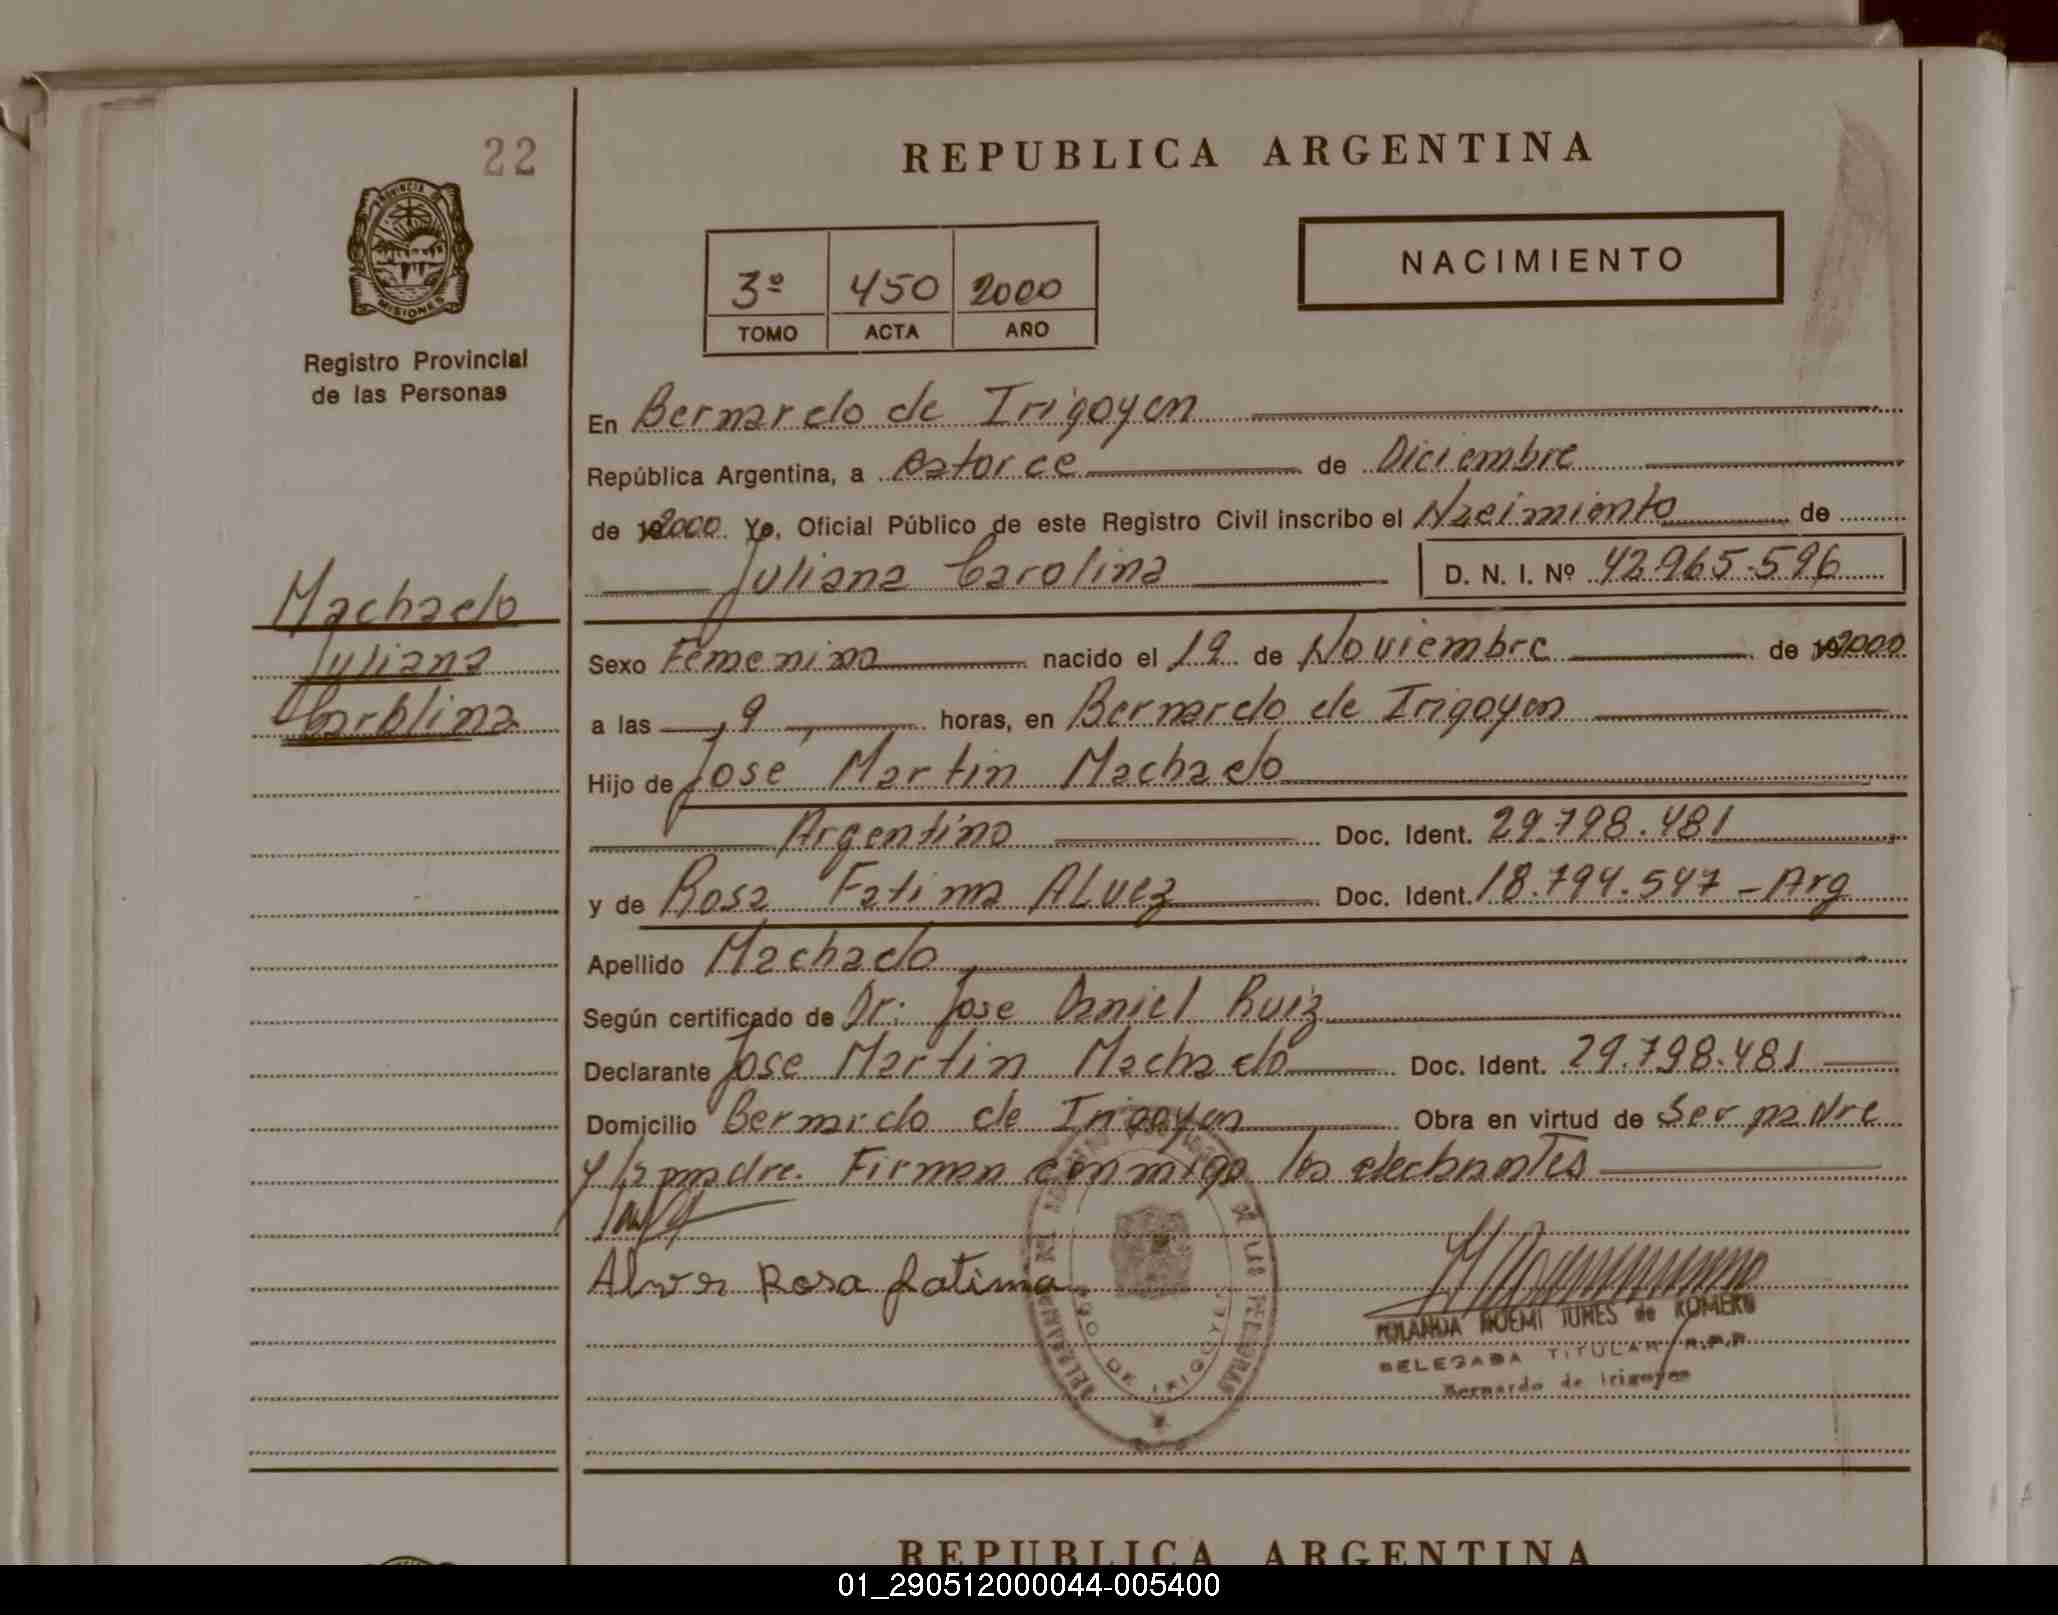 22
REPUBLICA ARGENTINA
PROVINCIA DE
MISIONES
Registro Provincial
de las Personas
3º 450 2000
TOMO ACTA AÑO
NACIMIENTO
En Bernardo de Irigoyen
República Argentina, a Catorce de Diciembre
de 2000 Yo, Oficial Público de este Registro Civil inscribo el Nacimiento de
Juliana Carolina D. N. I. Nº 42.965.596
Machado
Juliana
Carolina
Sexo Femenino nacido el 19 de Noviembre de 2000
a las 9 horas, en Bernardo de Irigoyen
Hijo de José Martin Machado
Argentino Doc. Ident. 29.798.481
y de Rosa Fatima ALvez Doc. Ident. 18.794.547 - Arg
Apellido Machado
Según certificado de Dr: Jose Daniel Ruiz
Declarante Jose Martin Machado Doc. Ident. 29.798.481
Domicilio Bernardo de Irigoyen Obra en virtud de Ser padre
y la madre. Firman conmigo los declarantes
Alvez Rosa fatima
YOLANDA NOEMI TUNES de ROMERO
DELEGADA TITULAR R.P.P.
Bernardo de Irigoyen
DE IRIGOYEN
REPUBLICA ARGENTINA
01_290512000044-005400